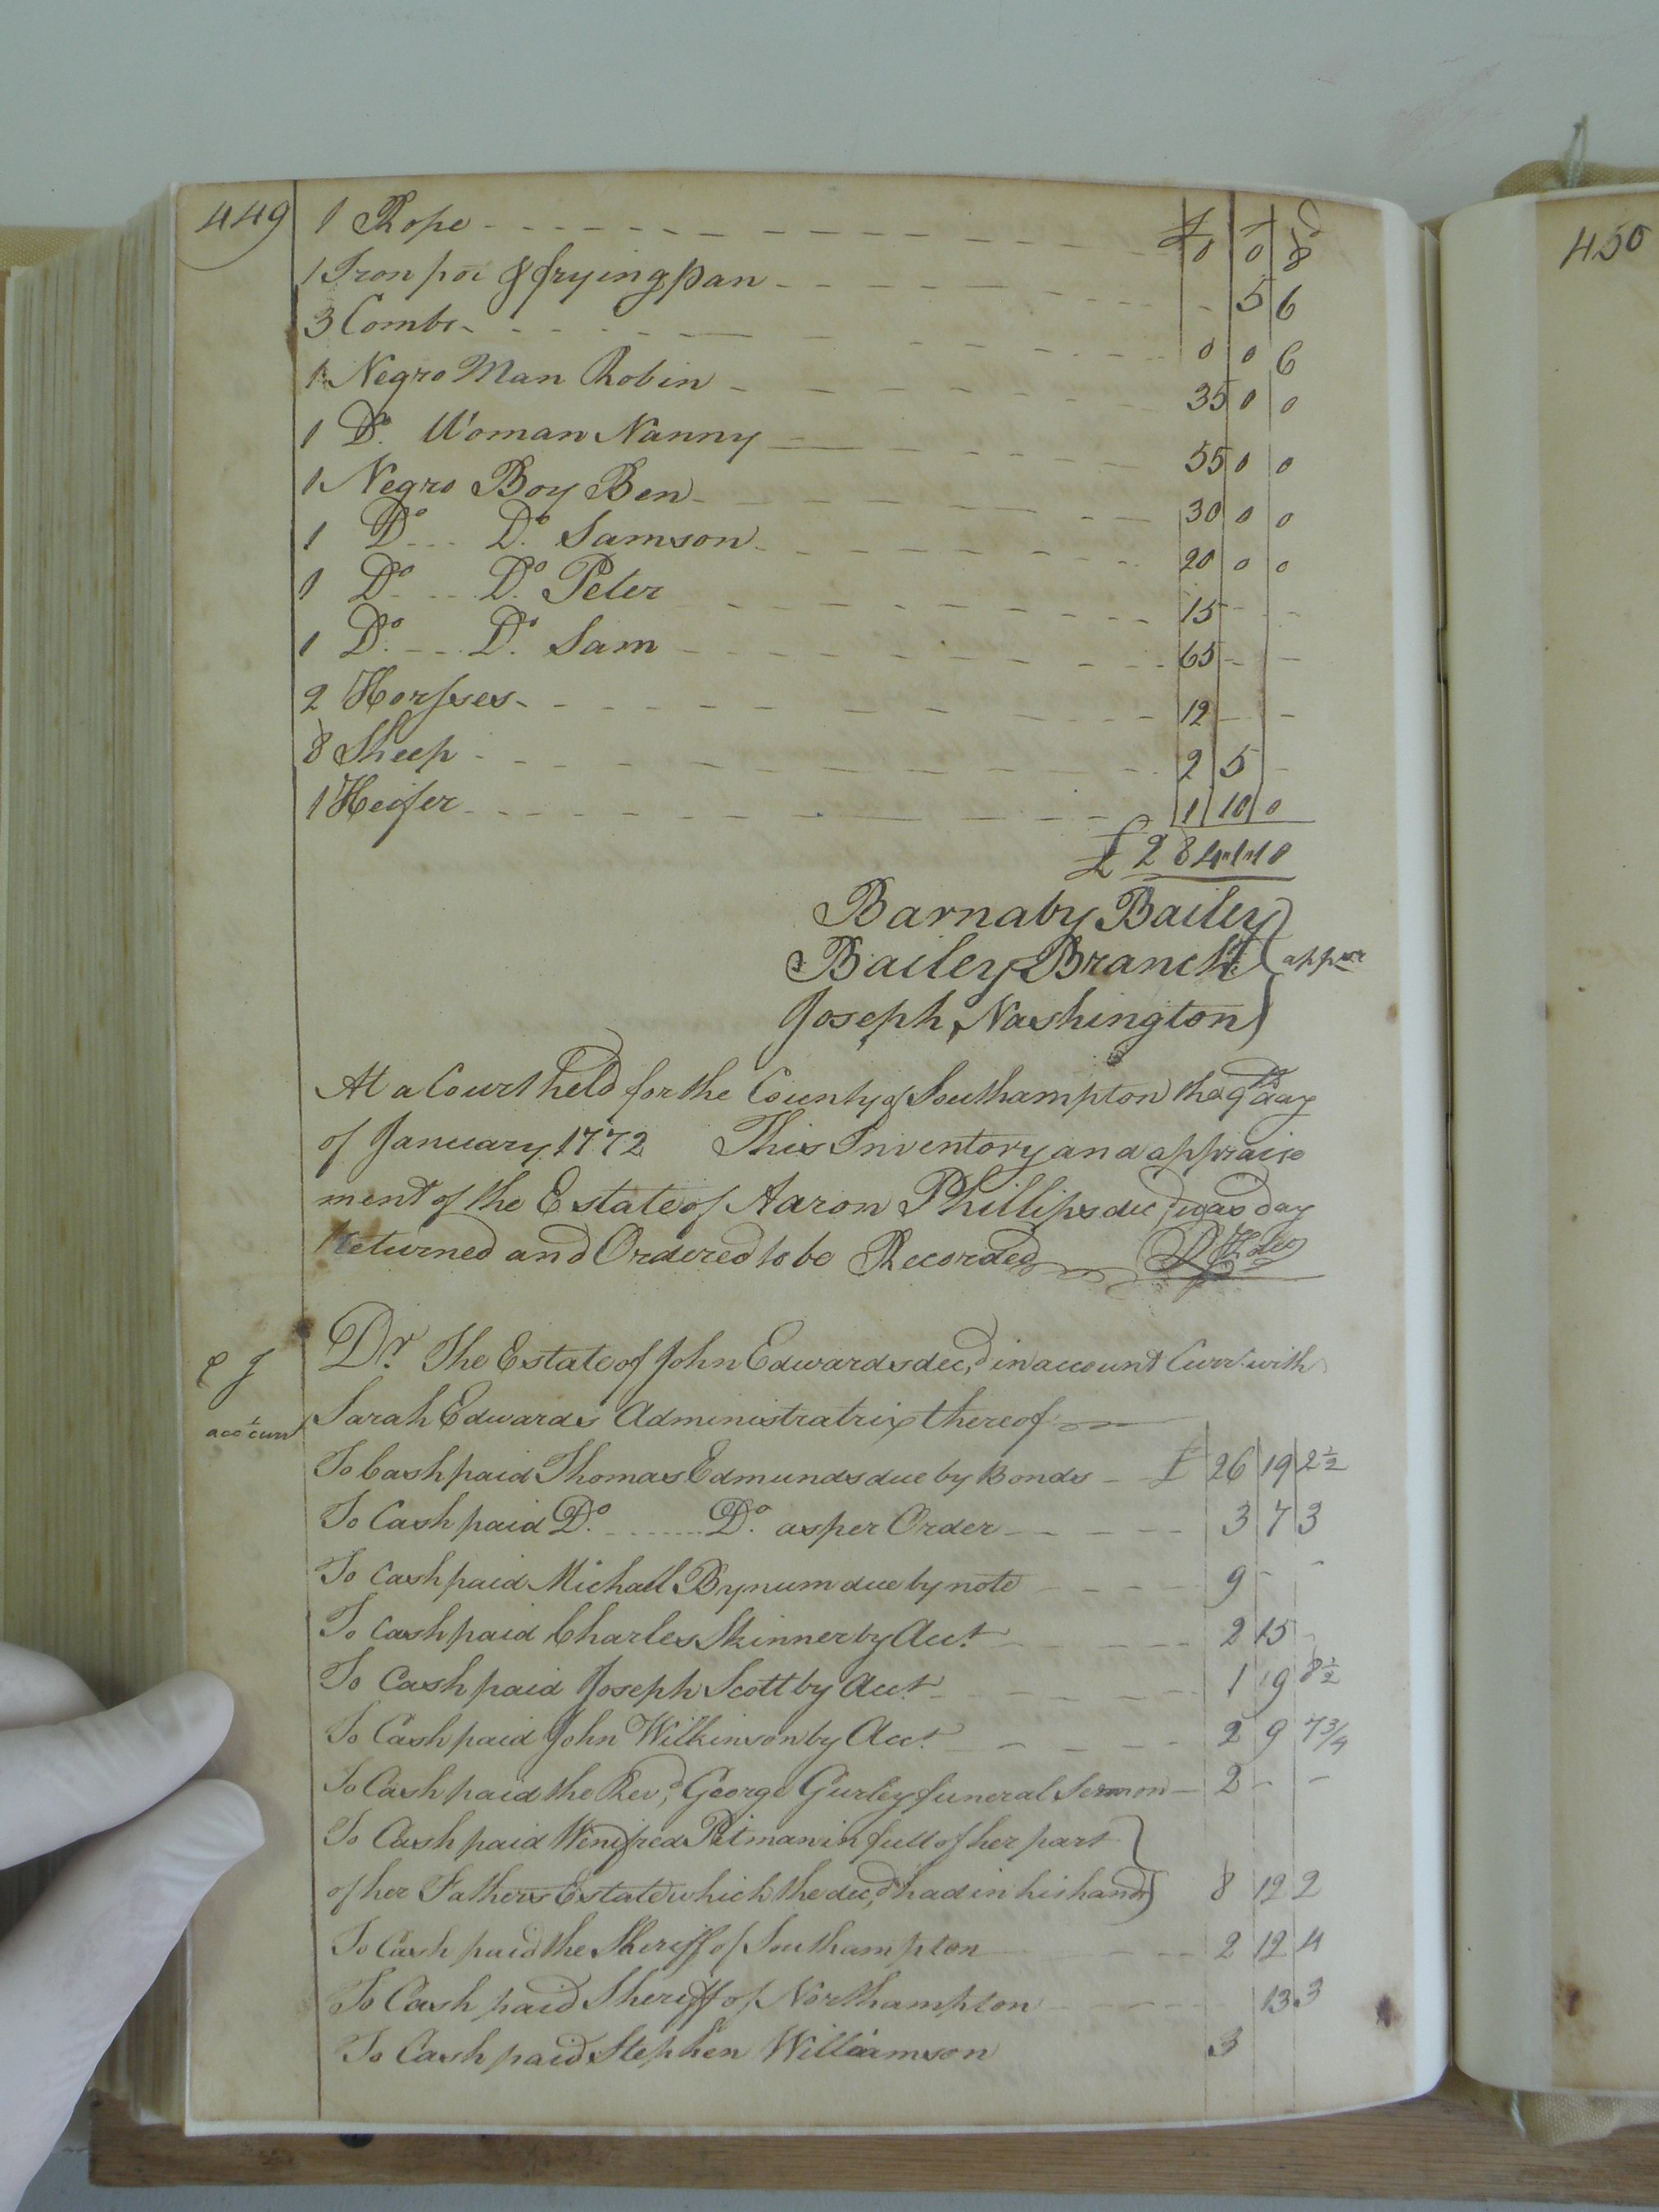 449
1 Rope £ 0 0 8
1 Iron pot & frying pan - 5 6
3 Combs 0 0 6
1 Negro Man Robin 35 0 0
1 Do. Woman Nanny 55 0 0
1 Negro Boy Ben 30 0 0
1 Do Do. Samson 20 0 0
1 Do Do. Peter 15 - -
1 Do. Do. Sam 65 - -
2 Horsses 12 - -
8 Sheep 2 5 -
1 Heifer 1 10 0
£ 284 " 1 " 10
Barnaby Bailey
Bailey Branch appr
Joseph Washington
At a Court held for the County of Southampton the 9th day
of January 1772 This Inventory and appraise
ment of the Estate of Aaron Phillips decd was day
Returned and Ordered to be Recorded
Dr. The Estate of John Edwards decd, in account Curr. with
acct curt Sarah Edwards Administratrix thereof
To Cash paid Thomas Edmunds due by Bonds £ 26 19 2½
To Cash paid Do. Do. as per Order 3 7 3
To Cash paid Michall Bynum due by note 9 - -
To Cash paid Charles Skinner by Acct. 2 15 -
To Cash paid Joseph Scott by Acct. 1 19 8½
To Cash paid John Wilkinson by Acct. 2 9 7¾
To Cash paid the Revd, George Gurley funeral Sermon 2 - -
To Cash paid Winifred Pitman in full of her part
of her Fathers Estate which the decd, had in his hands 8 12 2
To Cash paid the Sheriff of Southampton 2 12 4
To Cash paid Sheriff of Northampton 13 3
To Cash paid Stephen Williamson 3
450